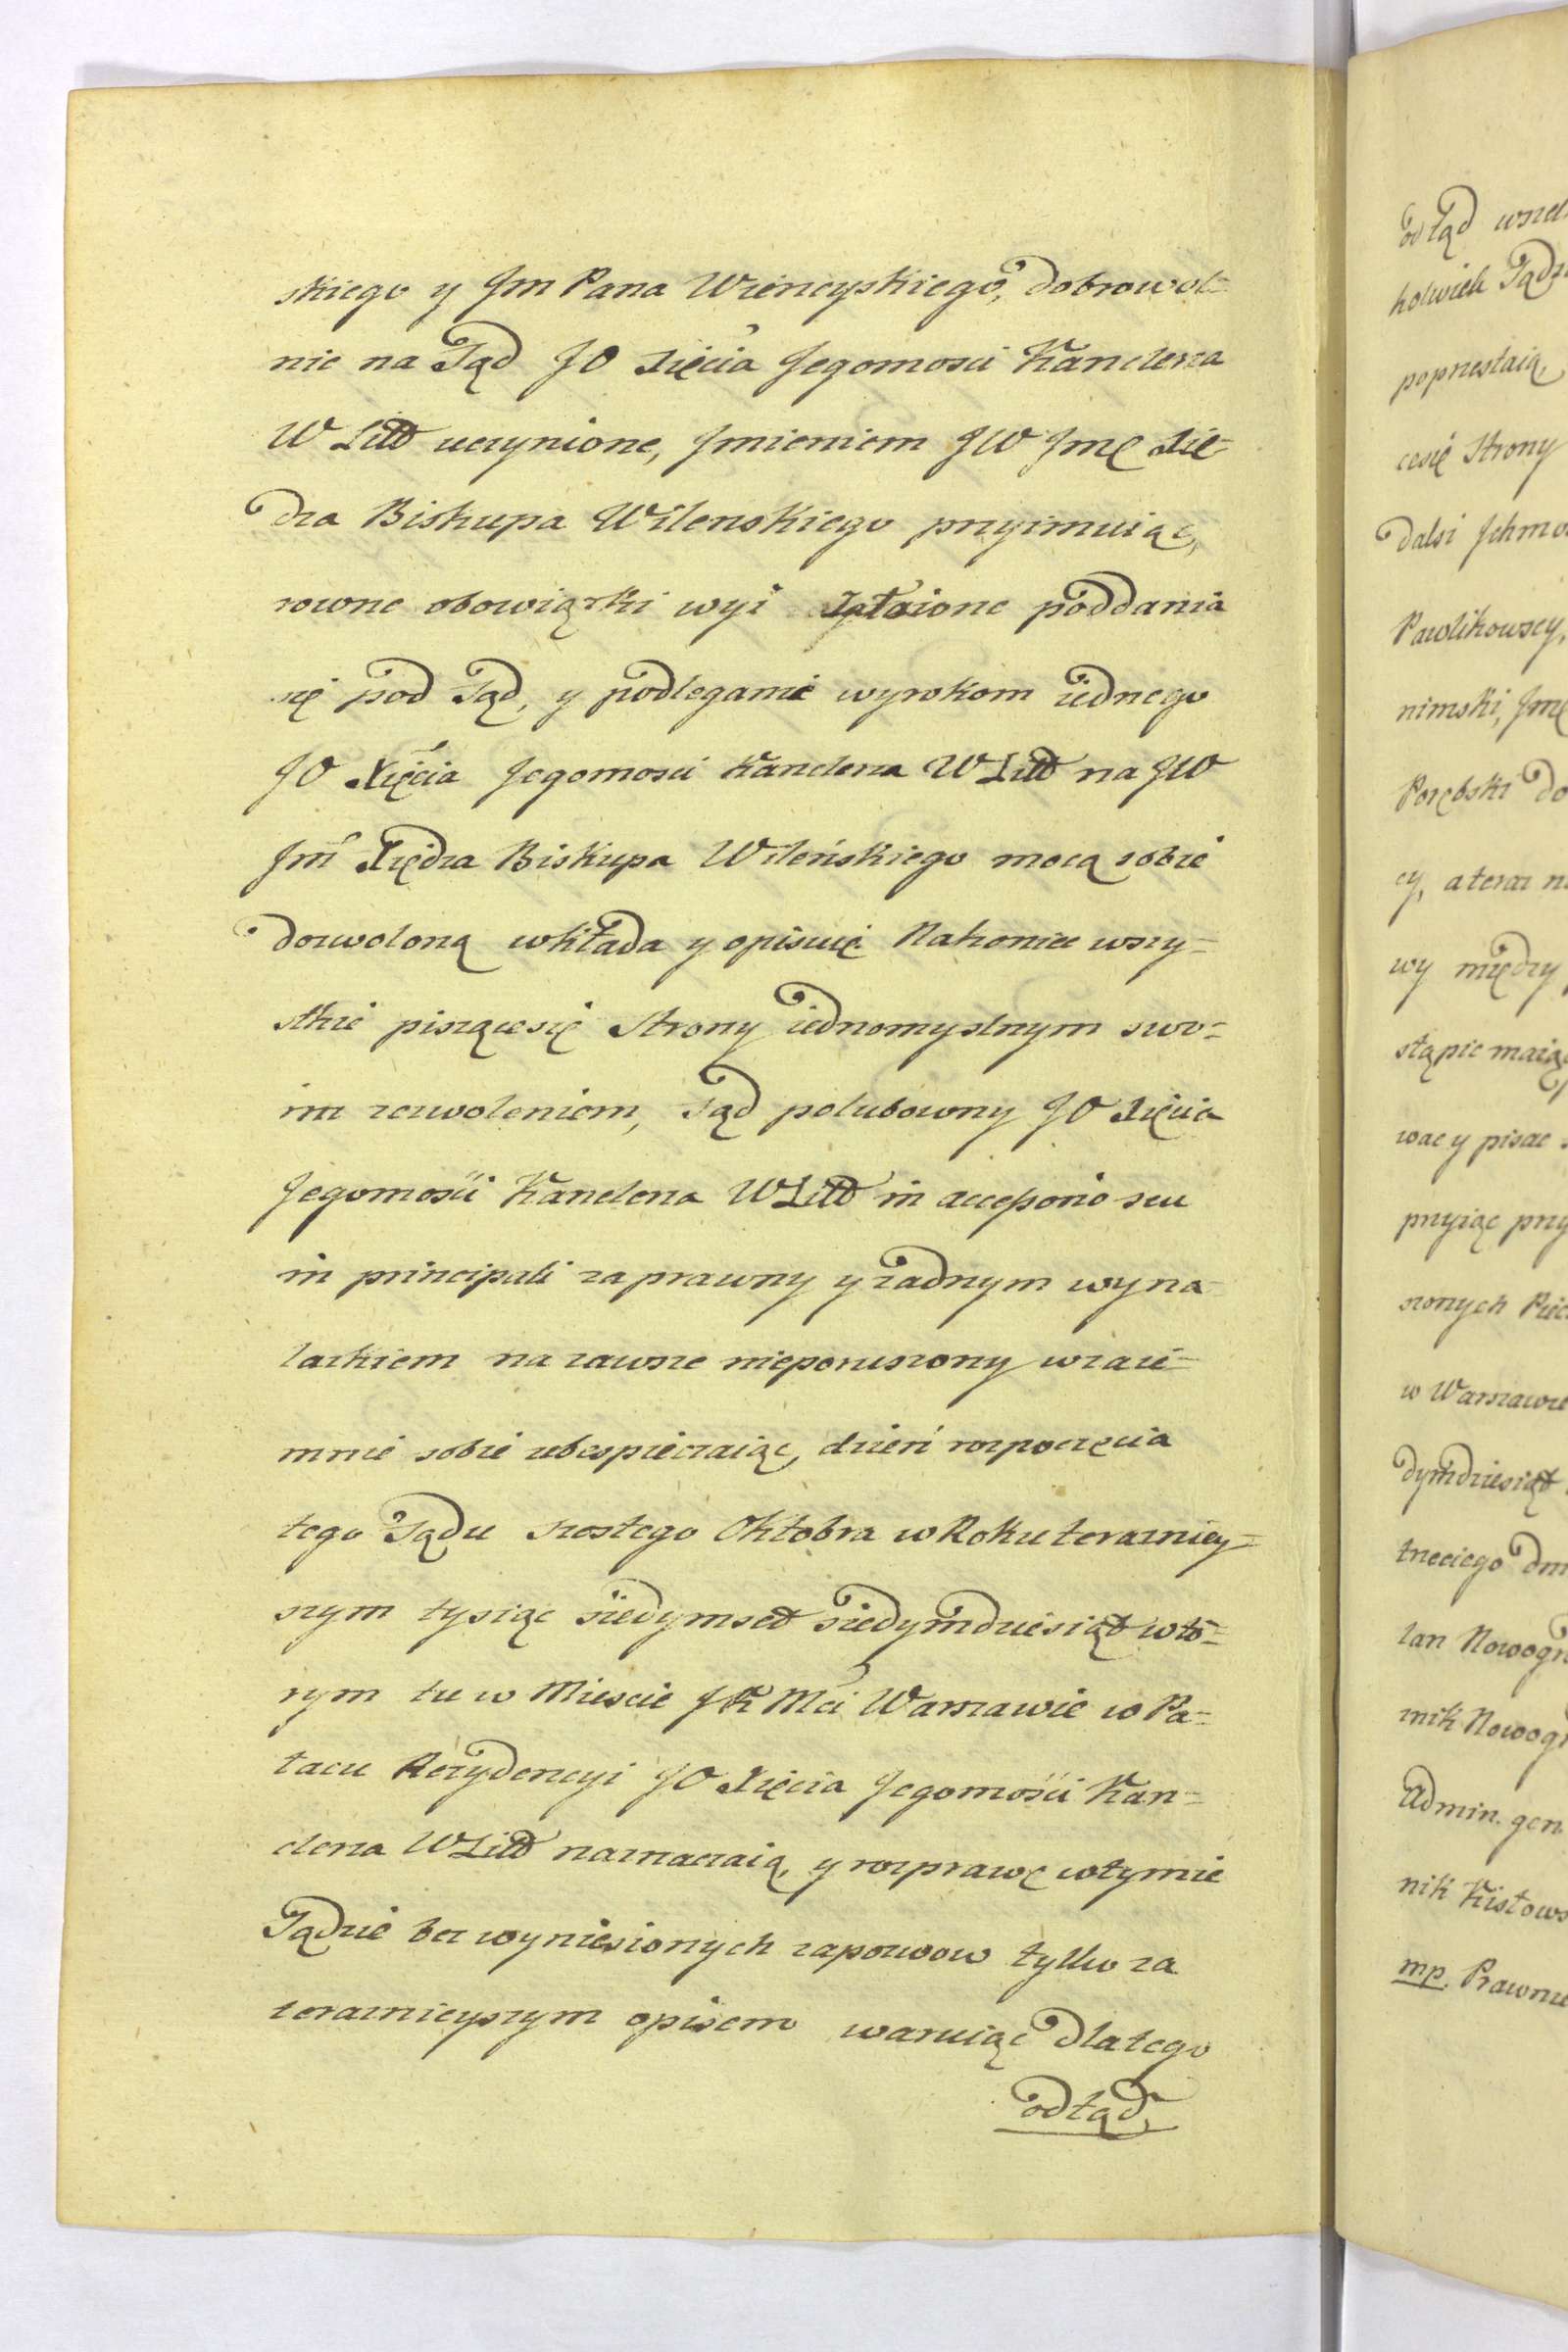 skiego y Jm Pana Wieńcyskiego, dobrowol=
nie na Sąd JO Xięcia Jegomosci Kanclerza
W Litt uczynione, Jmieniem JW Jmę Xię-
dza Biskupa Wilenskiego przyimuiąc,
rowne obowiązki wyi poddania
się pod Sąd, y podlegania wyrokom iednego
JO Xięcia Jegomosci Kanclerza W Litt na JW
Jm Xiędza Biskupa Wileńskiego mocą sobie
dozwoloną wkłada y opisuie. Nakoniec wszy=
stkie pisząće się Strony iednomyslnym swo=
im zezwoleniem, Sąd polubowny JO Xięcia
Jegomości Kanclerza W Litt in accessorio seu
in principali za prawny y żadnym wyna-
lazkiem na zawsze nieporuszony wzaie=
mnie sobie ubespieczaiąc, dzień rozpoczęcia
tego Sądu szostego Oktobra w Roku terazniey=
szym tysiąc siedymset siedymdziesiąt wto=
rym tu w Miescie JK Mci Warszawie w Pa=
łacu Rezydencyi JO Xięcia Jegomości Kan=
clerza W Litt naznaczaią, y rozprawę w tymże
Sądzie bez wyniesionych zapozwow tylko za
teraznieyszym opisem waruiąc dlatego
odtąd,
odtąd
kolwiek
poprzestaią,
cesię Strony
dalsi Jchmo
Pawlikowscy,
nimski, Jmę
Porębski do
cy, a teraz
wy między
stąpić maiąc
wac y pisac
przyiąc
szonych
w Warszawie
dymdziesiąt
trzeciego
lan
nik
Admin. gen.
nik
mp.